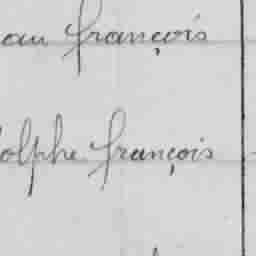 eau françois
olphe françois